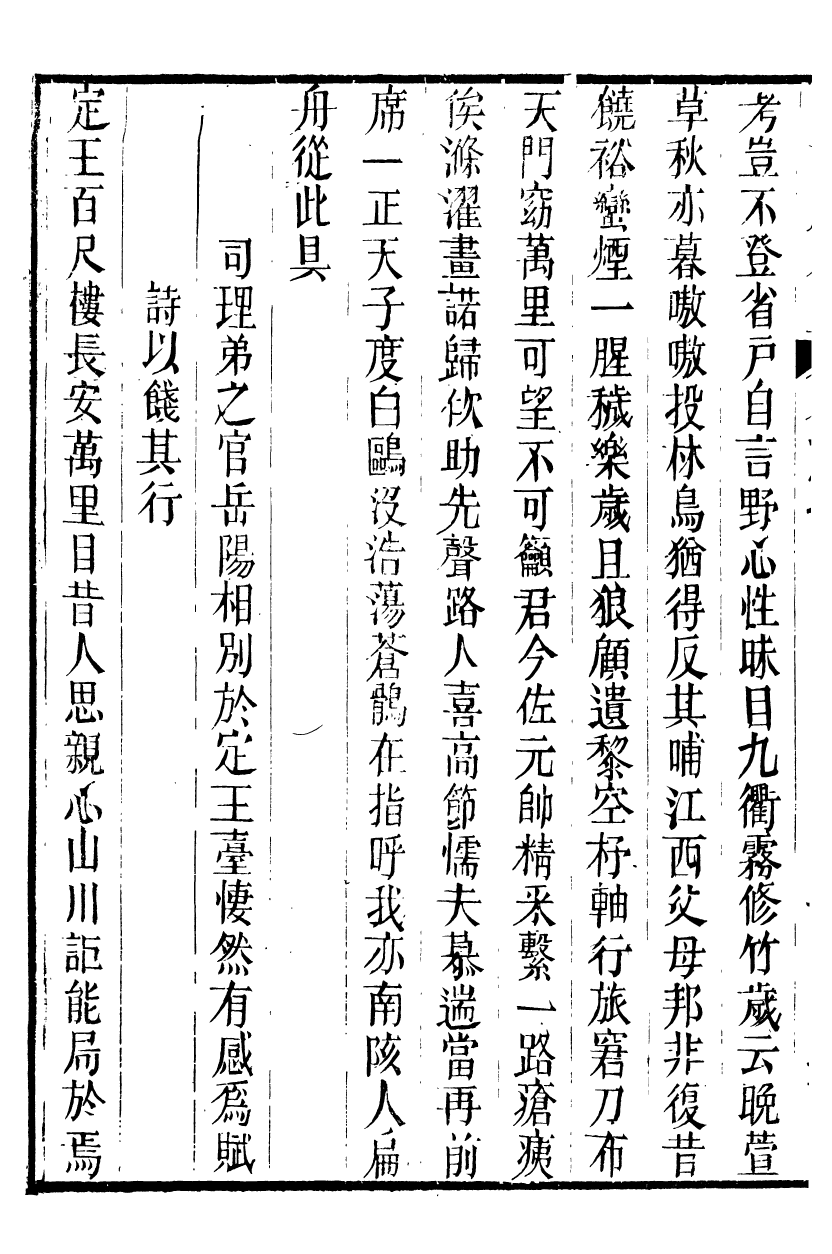 考豈不登省戸自言野心性眯目九衢霧修竹歲云晚萱
草秋亦暮嗷嗷投林鳥猶得反其哺江西父母邦非復昔
饒裕蠻煙一腥穢樂歲且狼顧遺黎空杼軸行旅窘刀布
天門窈萬里可望不可籲君今佐元帥精釆繫一路瘡痍
俟滌濯畫諾歸佽助先聲路人喜高節懦夫慕遄當再前
席一正天子度白鷗沒浩蕩蒼鶻在指呼我亦南陔人扁
舟從此具
司理弟之官岳陽相別於定王臺悽然有感爲賦
詩以餞其行
定王百尺樓長安萬里目昔人思親心山川詎能局於焉